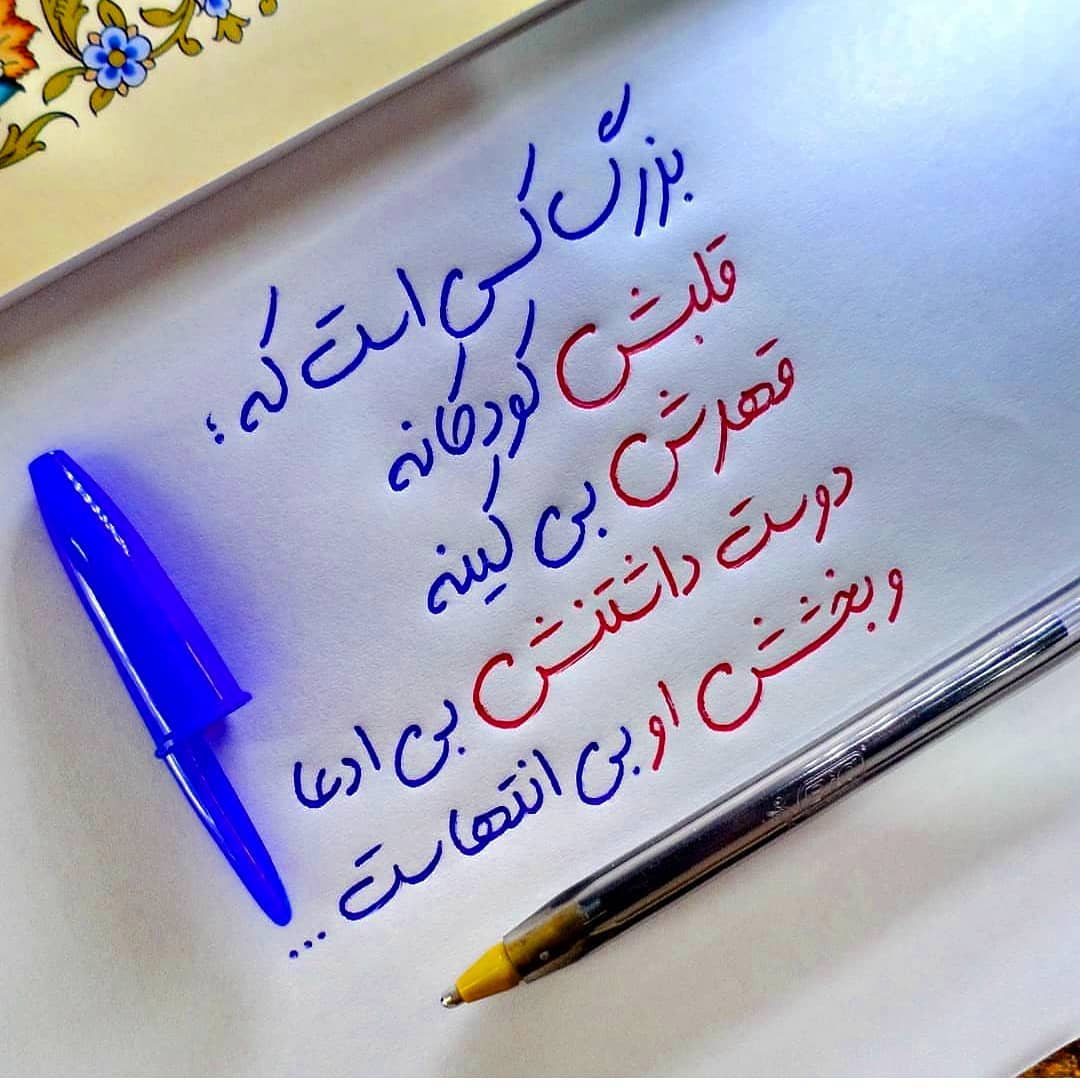 بزرگ کسی است که ؛
قلبش کودکانه
قهرش بی کینه
دوست داشتنش بی ادعا
و بخشش او بی انتهاست ...